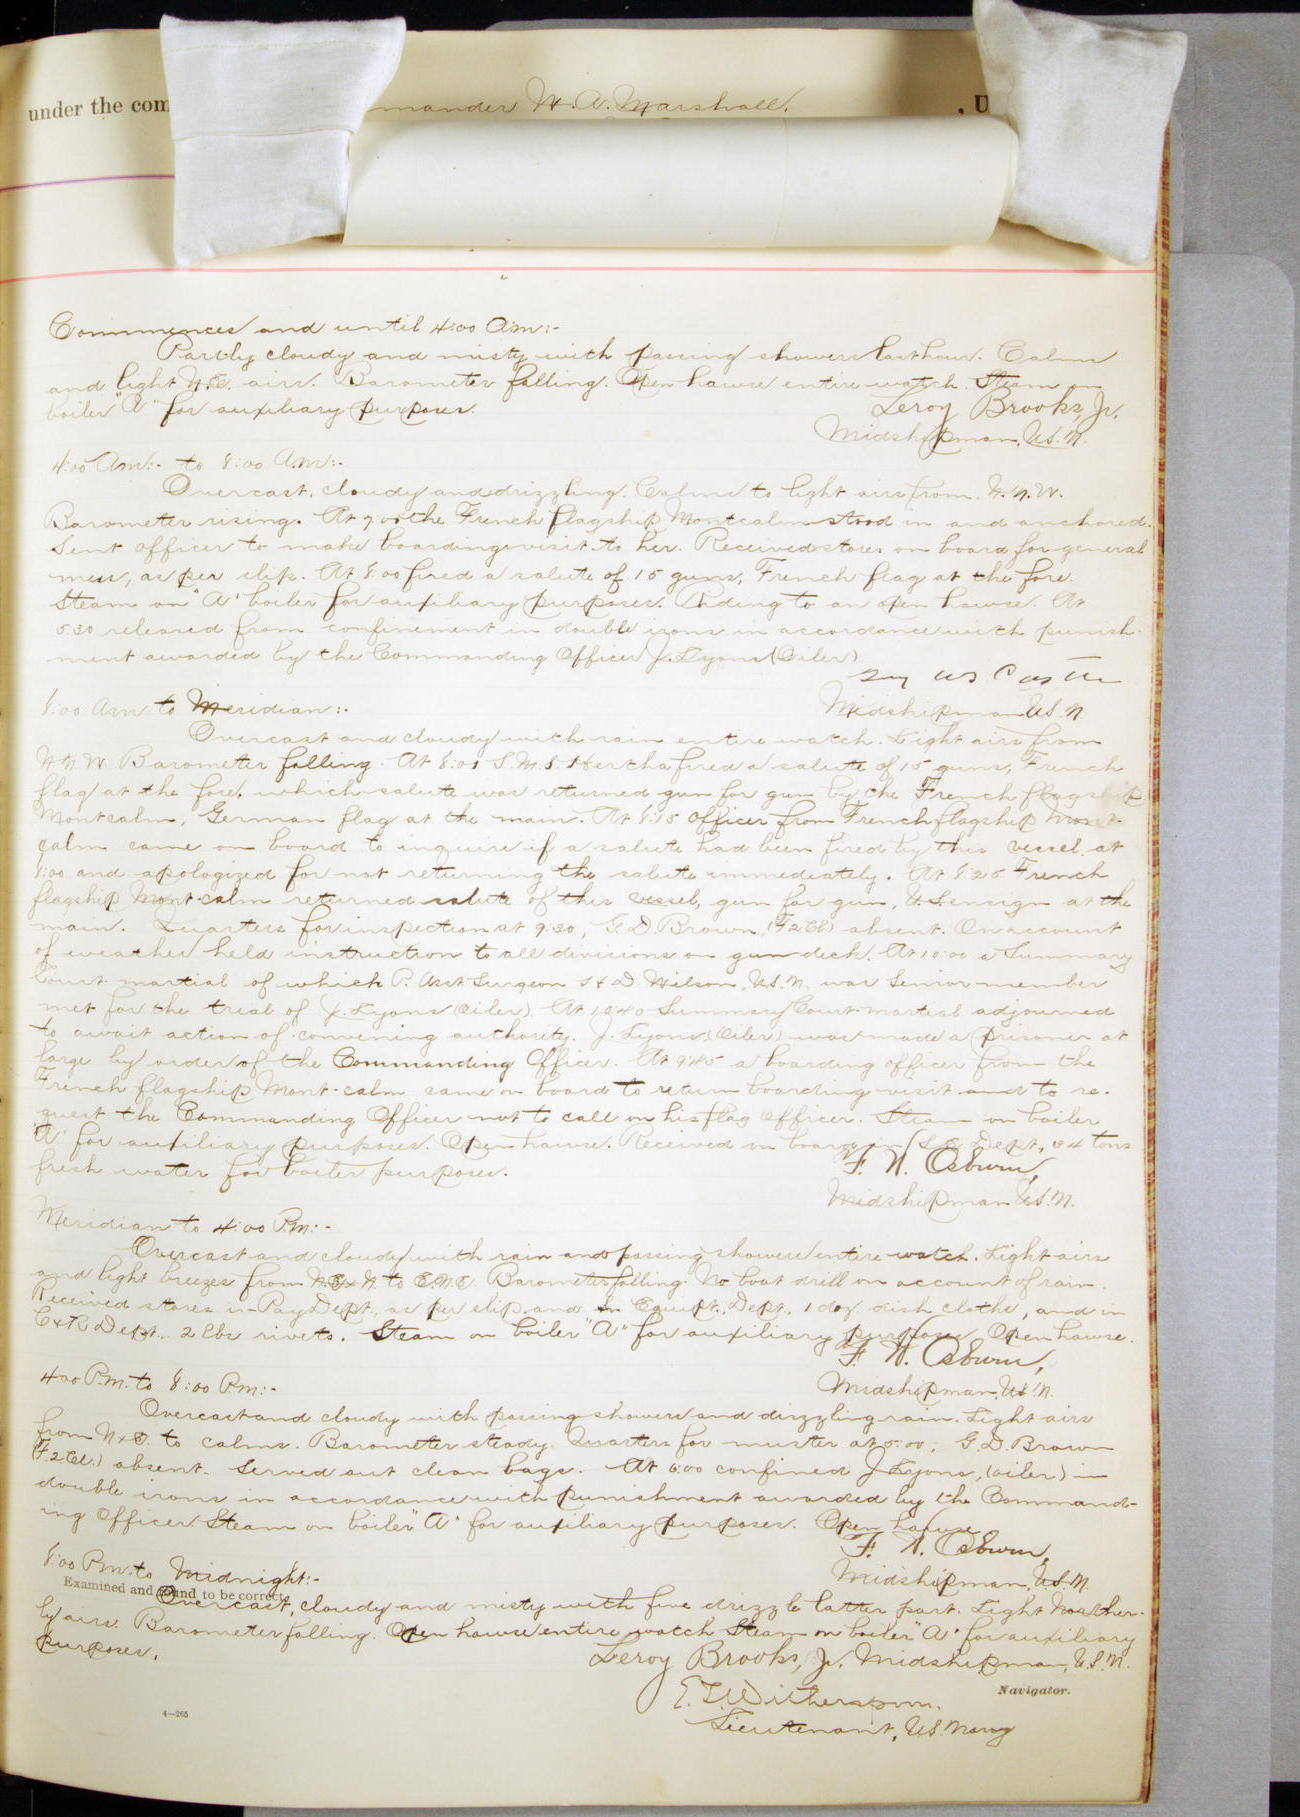 under the com mander W. A. Marshall. , U
Commences and until 4:00 A.m:-
Partly cloudy and misty with passing showers last hour. Calms
and light N.E. airs. Barometer falling. Open hawse entire watch. Steam on
boiler "A" for auxiliary purposes.
Leroy Brooks, Jr.
Midshipman, U.S.N.
4:00 Am:- to 8:00 A.m:-
Overcast, cloudy and drizzling. Calms to light airs from N.N.W.
Barometer rising. At 7:00 the French flagship Montcalm stood in and anchored.
Sent officer to make boarding visit to her. Received stores on board for general
mess, as per slip. At 8:00 fired a salute of 15 guns, French flag at the fore.
Steam on "A" boiler for auxiliary purposes. Riding to an open hawse. At
5:30 released from confinement in double irons in accordance with punish-
ment awarded by the Commanding Officer J. Lyons (Oiler)
Guy W S Castle
Midshipman U.S.N
8:00 Am to Meridian:-
Overcast and cloudy with rain entire watch. Light airs from
N N W Barometer falling. At 8:01 S.M.S. Hertha fired a salute of 15 guns, French
flag at the fore, which salute was returned gun for gun by the French flagship
Montcalm, German flag at the main. At 8:15 officer from French flagship Mont-
calm came on board to inquire if a salute had been fired by this vessel at
8:00 and apologized for not returning the salute immediately. At 8:20 French
flagship Mont-calm returned salute of this vessel, gun for gun, U.S. ensign at the
main. Quarters for inspection at 9:30, G. D. Brown, (F2Cl) absent. On account
of weather held instruction to all divisions on gun deck. At 10:00 a Summary
Court martial of which P. Asst Surgeon S & D Wilson, U.S.N. was Senior member
met for the trial of J. Lyons (Oiler). At 10:40 Summary Court-martial adjourned
to await action of convening authority. J. Lyons, (Oiler) was made a prisoner at
large by order of the Commanding Officer. At 9:45 a boarding officer from the
French flagship Mont-calm came on board to return boarding visit and to re-
quest the Commanding Officer not to call on his flag officer. Steam on boiler
"A" for auxiliary purposes. Open hawse. Received on board in S. E. Dept., 34 tons
fresh water for boiler purposes.
F. N. Osburn,
Midshipman U.S.N.
Meridian to 4:00 P.m:-
Overcast and cloudy with rain and passing showers entire watch. Light airs
and light breezes from N.E.xN. to E.N.E. Barometer falling. No boat drill on account of rain.
Received stores in Pay Dept., as per slip, and in Equipt. Dept. 1 doz dish cloths, and in
C & R Dept. 2 lbs rivets. Steam on boiler "A" for auxiliary purposes. Open hawse.
F. N. Osburn,
Midshipman, U.S.N.
4:00 P.M. to 8:00 P.m:-
Overcast and cloudy with passing showers and drizzling rain. Light airs
from NxE. to calms. Barometer steady. Quarters for muster at 5:00; G. D. Brown
(F.2Cl.) absent. Served out clean bags. At 6:00 confined J. Lyons, (oiler) in
double irons in accordance with punishment awarded by the Command-
ing Officer. Steam on boiler "A" for auxiliary purposes. Open hawse.
F. N. Osburn,
Midshipman, U.S.N.
8:00 P.m. to Midnight:-
Examined and found to be correct.
Overcast, cloudy and misty with fine drizzle latter part. Light Norther-
ly airs. Barometer falling. Open hawse entire watch. Steam on boiler "A" for auxiliary
purposes.
Leroy Brooks, Jr. Midshipman, U.S.N.
Navigator.
E. T. Witherspoon.
Lieutenant, U.S. Navy
4—265